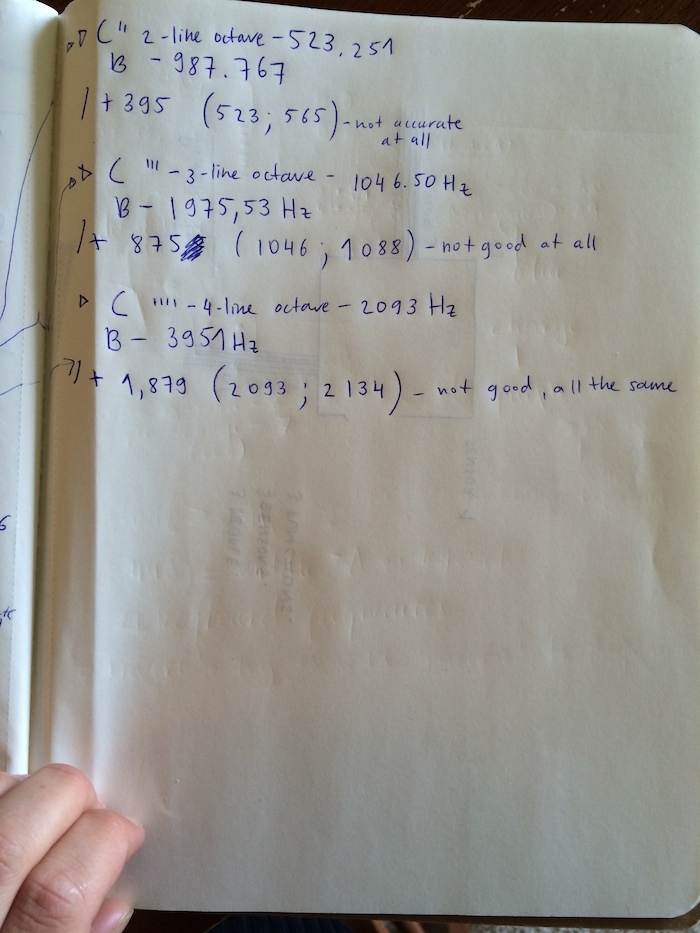 C'' 2-line octave - 523.251
B - 987.767
/+ 395 (523; 565) - not accurate
at all
C ''' - 3-line octave - 1046.50 Hz
B - 1975,53 Hz
/+ 875 (1046; 1088) - not good at all
C '''' - 4-line octave - 2093 Hz
B - 3951 Hz
/+ 1,879 (2093; 2134) - not good, all the same